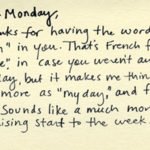 Monday,
nks for having the word
n" in you. That's French f
e", in case you weren't a
ay, but it makes me thin
more as "my day," and f
Sounds like a much mor
ising start to the week